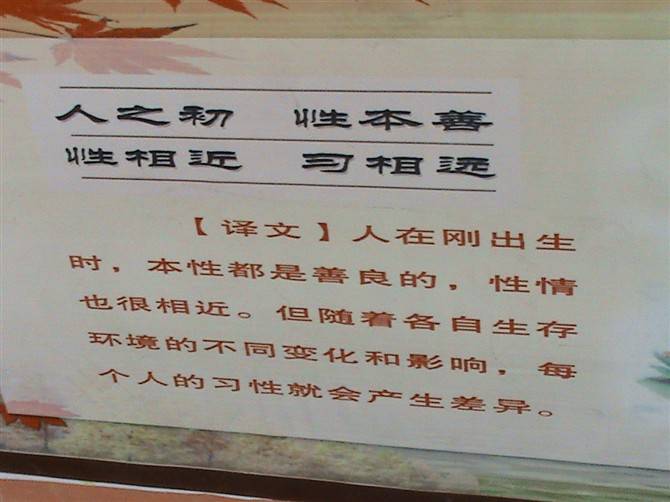 人之初 性本善
性相近 习相远
【译文】人在刚出生
时，本性都是善良的，性情
也很相近。但随着各自生存
环境的不同变化和影响，每
个人的习性就会产生差异。